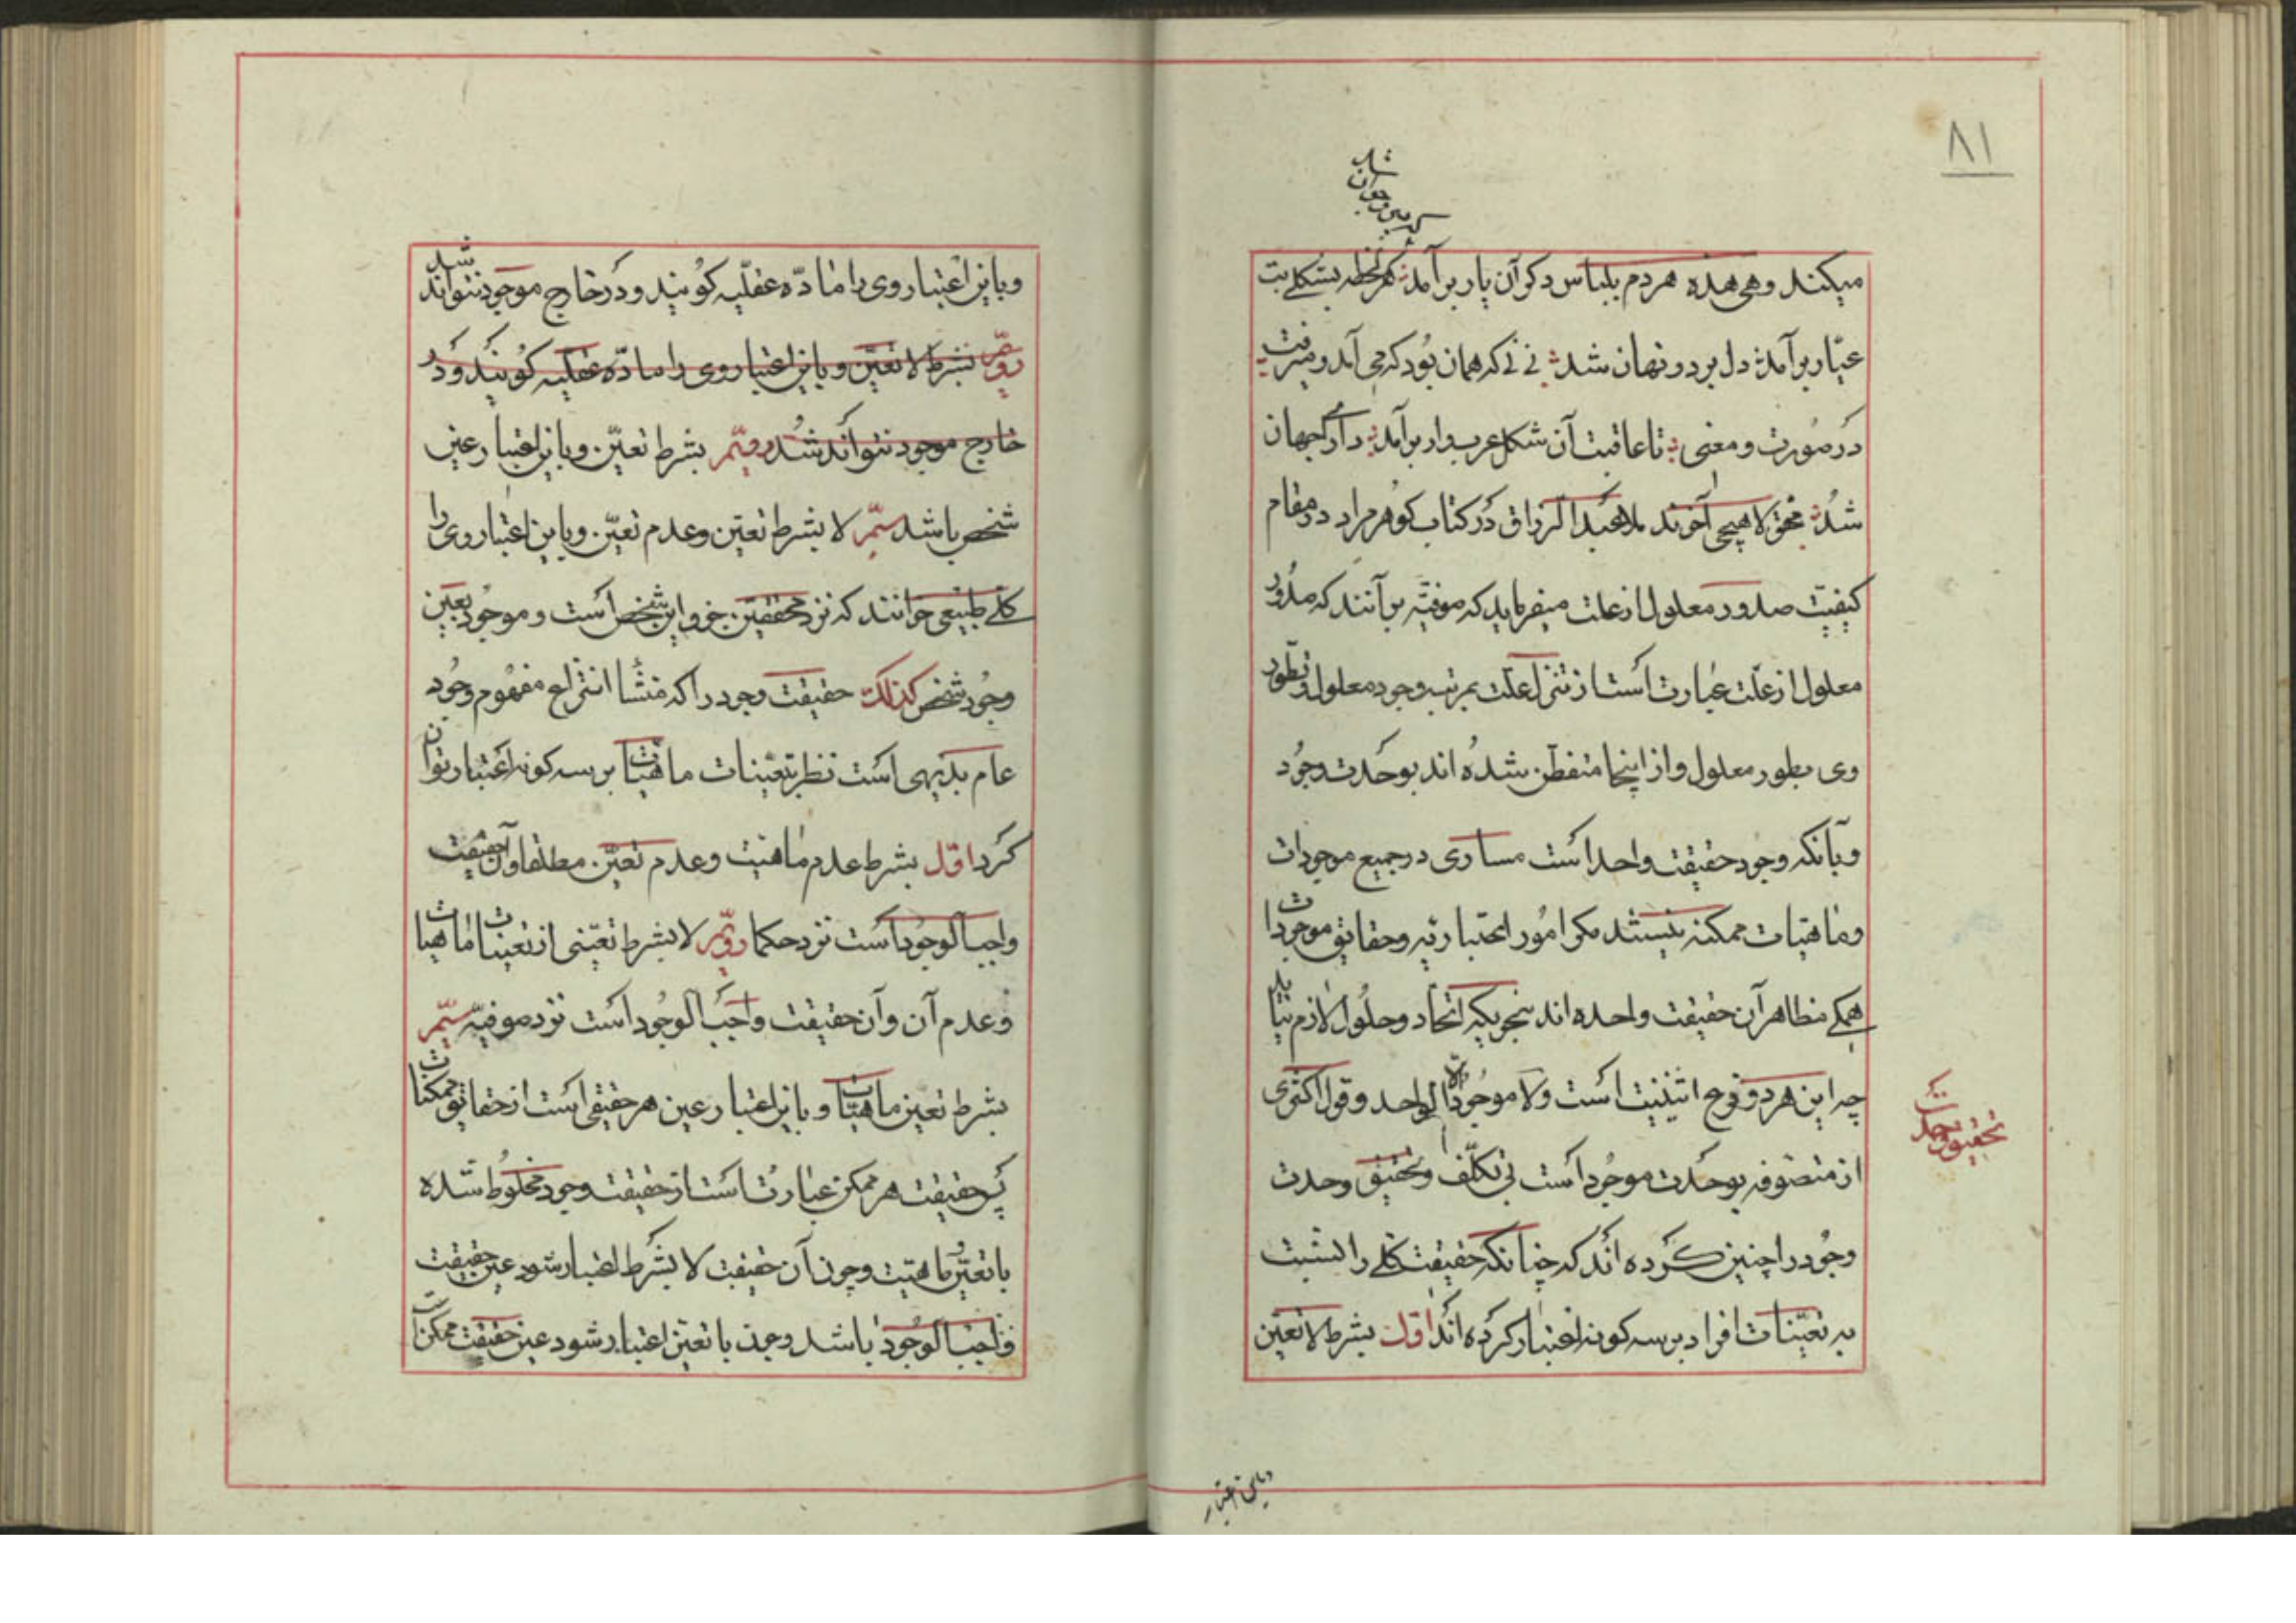 ۸۱
گه پیر و جوان شد
میکند وهی هذه هر دم بلباس دکر آن یار برآمد هر لحظه بشکلے بت
عیّار برآمد دل برد ونهان شد نے نے که همان بود که می آمد ومیرفت
در صورت ومعنی تا عاقبت آن شکل عرب وار برآمد دارای جهان
شد محقق لاهیجی آخوند ملا عبد الرزاق در کتاب کوهر مراد در مقام
کیفیت صدور معلول از علت میفرماید که صوفیّه برآنند که صدور
معلول از علّت عبارت است از تنزل علّت بمرتبه وجود معلول وتطور
وی بطور معلول واز اینجا متفطن شده اند بوحدت وجود
وبآنکه وجود حقیقت واحد است مساری در جمیع موجودات
وماهیات ممکنه نیستند مکر امور اعتباریّه وحقایق موجودات
همکے مظاهر آن حقیقت واحده اند بنحویکه اتحاد وحلول لازم نیاید
چه این هر دو فرع اثنینیت است ولا موجود الا الواحد وقول اکثری
از متصوفه بوحدت موجود است بی تکلّف وتحقیق وحدت
وجود را چنین کرده اند که چنانکه حقیقت کلے را نسبت
به تعیّنات افراد بر سه کونه اعتبار کرده اند اوّل بشرط لا تعیّن
تحقیق وحدت
وباین اعتبار
وباین اعتبار وی را مادّه عقلیّه کویند ودر خارج موجود نتواند شد
دویّم بشرط لا تعیّن وباین اعتبار وی را مادّه عقلیه کویند ودر
خارج موجود نتواند شد دویّم بشرط تعیّن وباین اعتبار عین
شخص باشد سیّم لا بشرط تعیّن وعدم تعیّن وباین اعتبار وی را
کلے طبیعی خوانند که نزد محققین جزو این شخص است وموجود بعین
وجود شخص کذلک حقیقت وجود را که منشأ انتزاع مفهوم وجود
عام بدیهی است نظر بتعیّنات ماهیّات بر سه کونه اعتبار توان
کرد اوّل بشرط عدم ماهیت وعدم تعیّن مطلقا وآن حقیقت
واجب الوجود است نزد حکما دویّم لا بشرط تعیّنی از تعینات ماهیات
وعدم آن وآن حقیقت واجب الوجود است نزد صوفیّه سیّم
بشرط تعین ماهیّات وباین اعتبار عین هر حقیقی است از حقایق ممکنات
پس حقیقت هر ممکن عبارت است از حقیقت وجود مخلوط شده
با تعیّن وماهیّت وچون آن حقیقت لا بشرط اعتبار شود عین حقیقت
واجب الوجود باشد وچون با تعیّن اعتبار شود عین حقیقت ممکن است